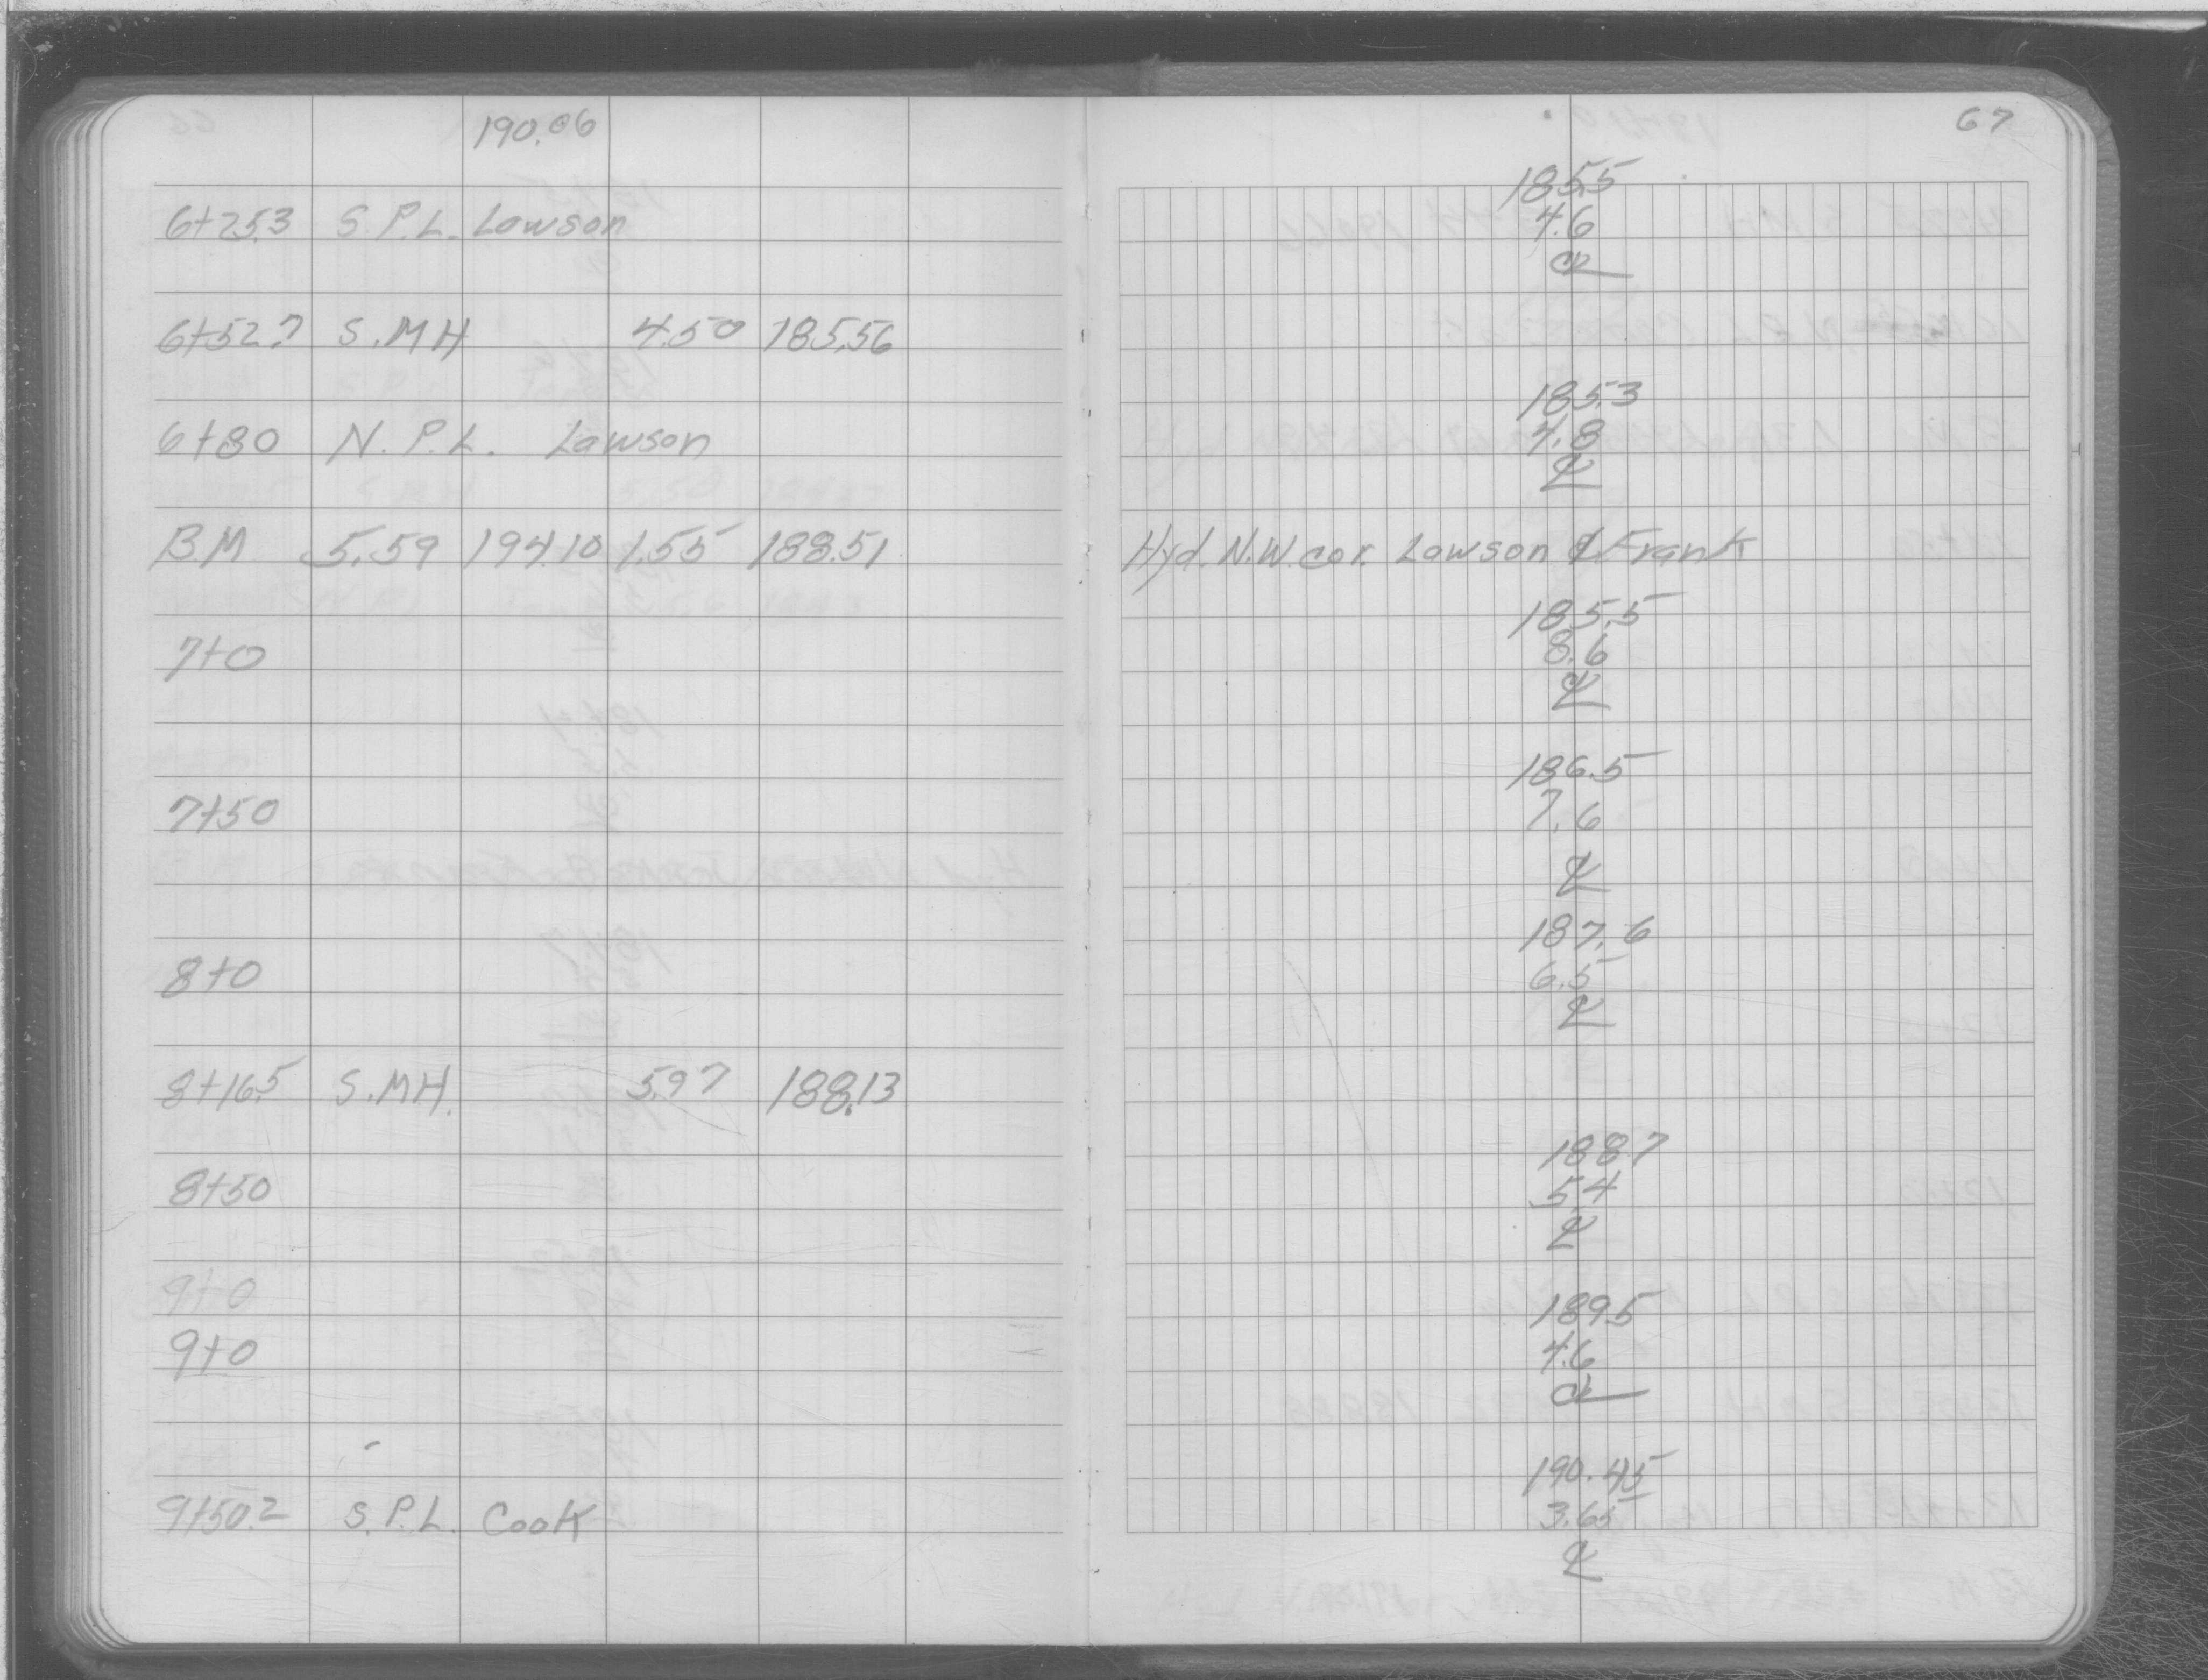 190.06
67
185.5
6+25.3 S.P.L. Lawson 4.6
℄
6+52.7 S.MH 4.50 185.56
185.3
6+80 N.P.L. Lawson 4.8
℄
B.M 5.59 194.10 1.55 188.51 Hyd. N.W. cor. Lawson & Frank
185.5
7+0 8.6
℄
186.5
7+50 7.6
℄
187.6
8+0 6.5
℄
8+16.5 S.MH. 5.97 188.13
188.7
8+50 5.4
℄
9+0
189.5
9+0 4.6
℄
190.45
9+50.2 S.P.L. Cook 3.65
℄